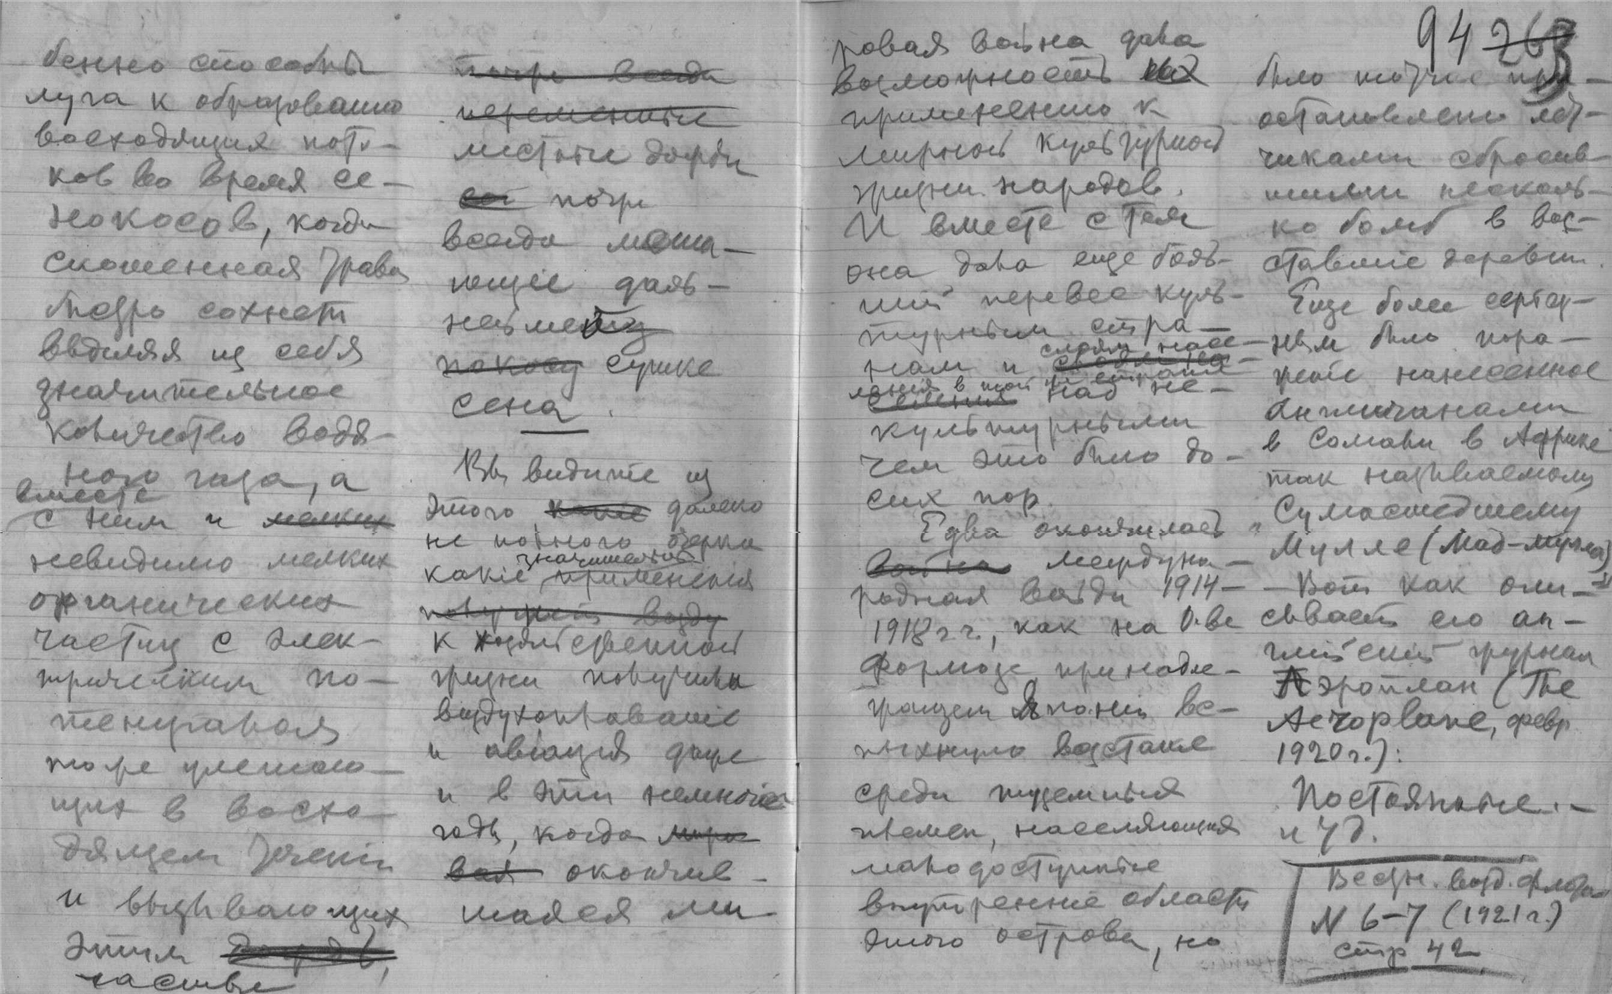 бенно способны
луга к образованию
восходящих пото-
ков во время се-
нокосов, когда
скошенная трава
быстро сохнет
выделяя из себя
значительное
количество водя-
ного газа, а
вместе
с ним и мелких
невидимо мелких
органических
частиц с элек-
трическим по-
тенциалом
тоже улетаю-
щих в восхо-
дящем течении
и вызывающих
этим
частые
почти всегда
переменные
местные дожди
почти
всегда меша-
ющие даль-
нейшему
покосу сушке
сена.
Вы видите из
этого какие далеко
не полного очерка
значительные
какие применения
к хозяйственной
жизни получили
воздухоплавание
и авиация даже
и в эти немногие
годы, когда миро
вая окончив-
шаяся ми-
94 263
ровая война дала
возможность их
применению к
мирной культурной
жизни народов.
И вместе с тем
она дала еще боль-
ший перевес куль-
турным стра-
слоям насе-
нам и
ления в той же стране
над не-
культурными
чем это было до-
сих пор.
Едва окончилась
война междуна-
родная война 1914-
1918 г.г., как на о-ве
Формозе принадле-
жащем Японии вс-
пыхнуло восстание
среди туземных
племен, населяющих
малодоступные
внутренние области
этого острова, но
было тотчас при-
остановлено лет-
чиками сбросив-
шими несколь-
ко бомб в вос-
ставшие деревни.
Еще более серьез-
ным было пора-
жение нанесенное
англичанами
в Сомали в Африке
так называемому
"Сумасшедшему
Мулле (Мад-Мулла)
- Вот как опи-
сывает его ан-
глийский журнал
Аэроплан (The
Aeroplane, февр.
1920 г.):
Постоянные. -
и т.д.
Вестн. возд. флота
N 6-7 (1921 г.)
стр 42